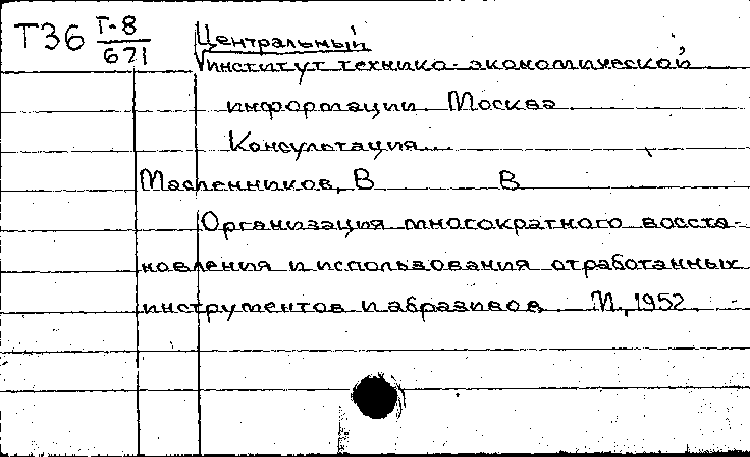 Т36 Г-8/671
Центральный
институт технико-экономической
информации. Москва
Консультация
Масленников, В В
Организация многократного восста-
новления и использования отработанных
инструментов и абразивов М., 1952